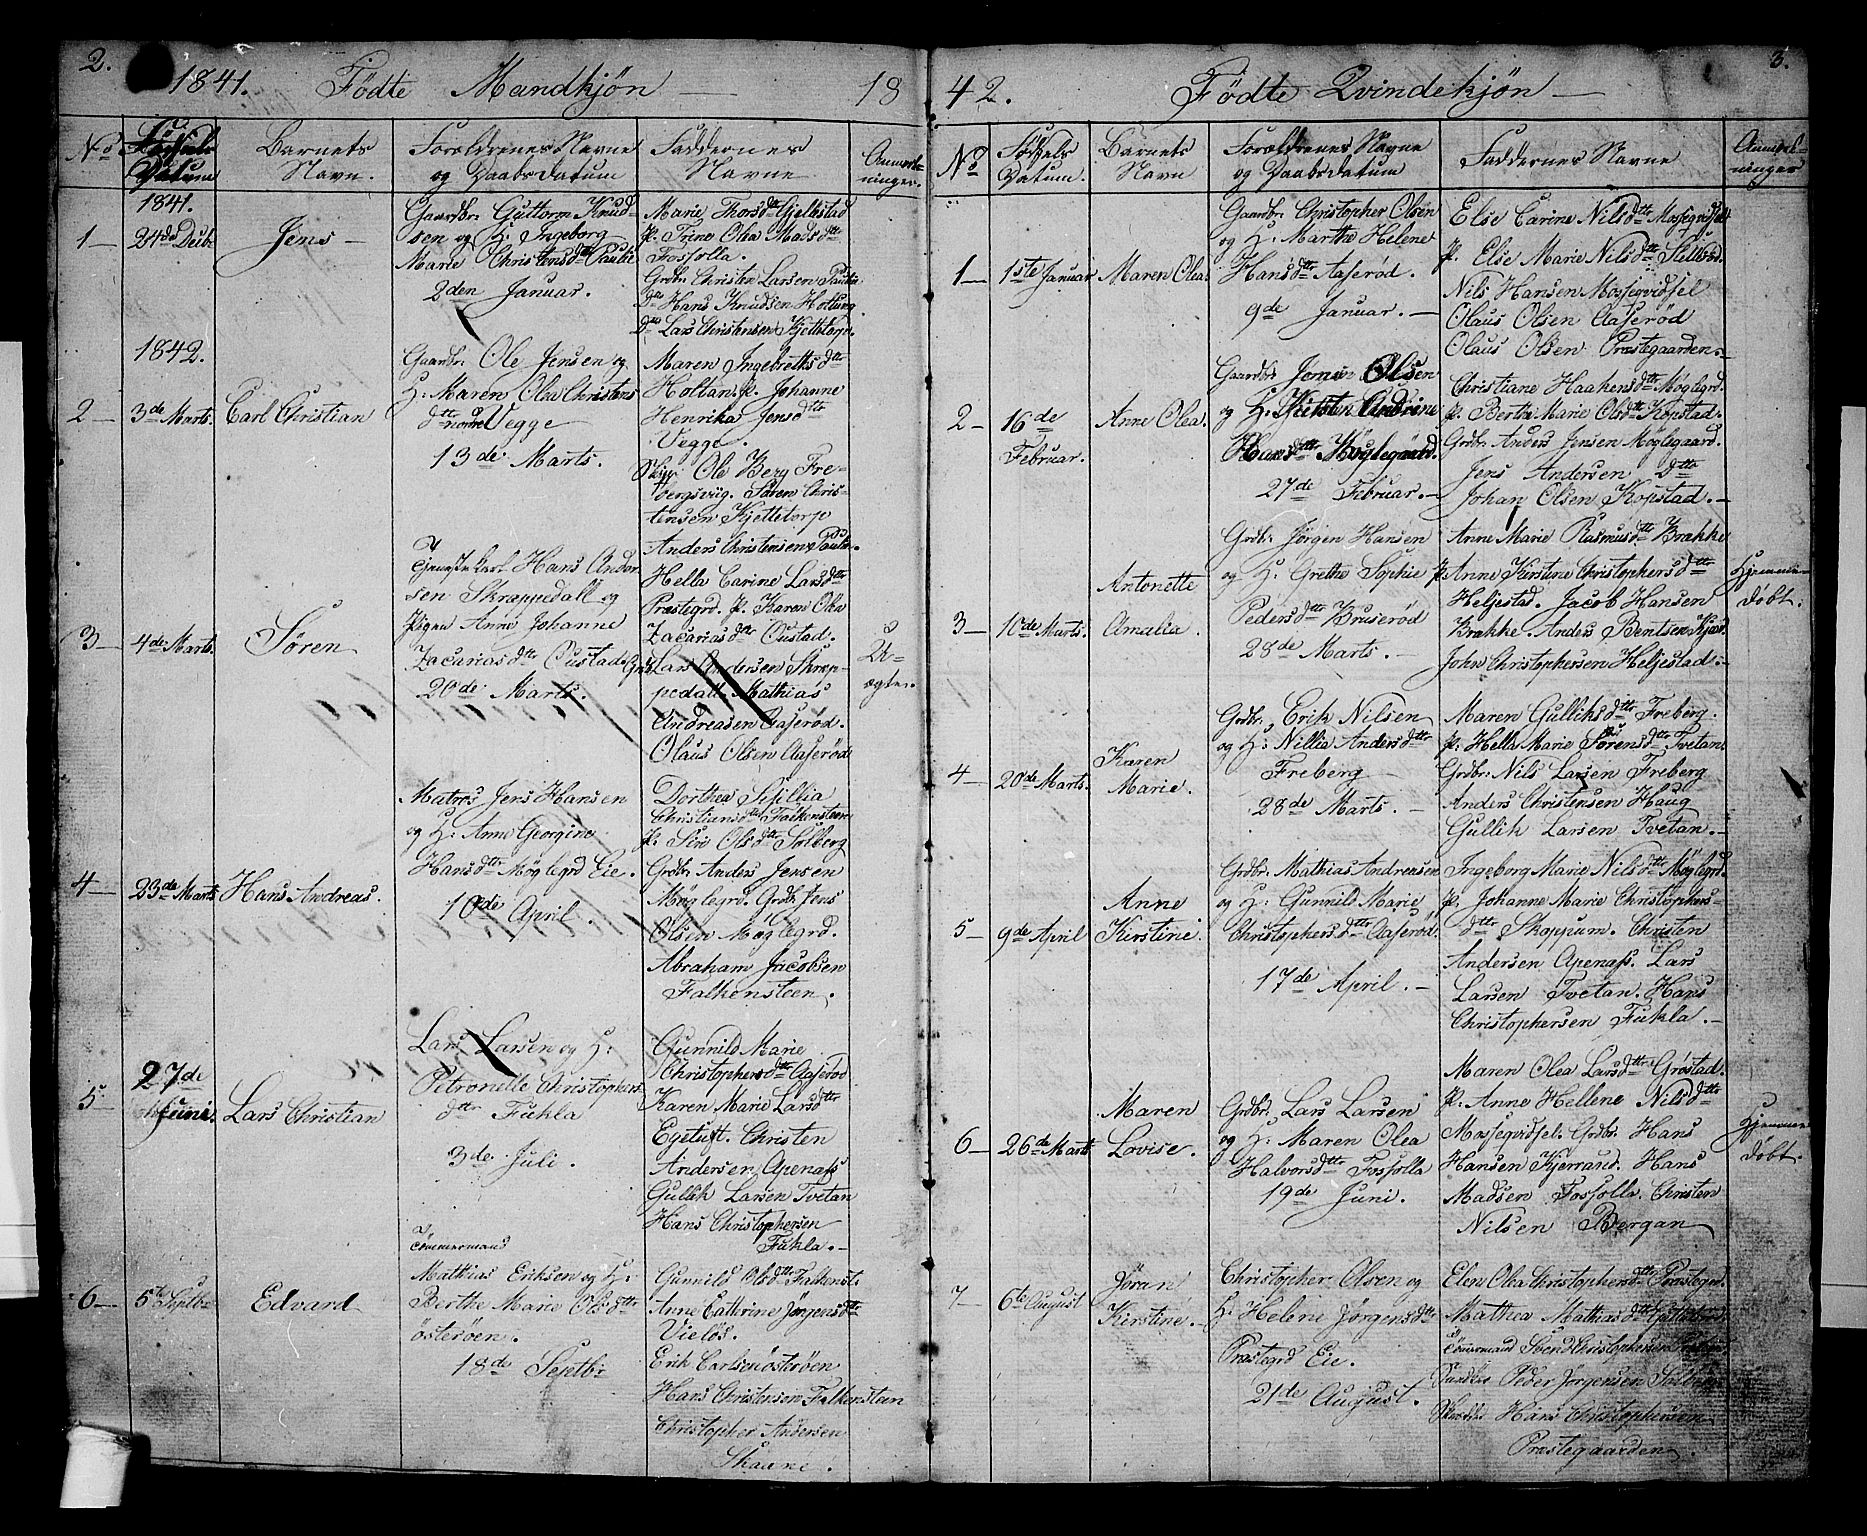 2.
1841. Fødte Mandkjøn — 18
No
Fødsels Datum
Barnets Navn.
Forældrenes Navne og Daabsdatum
Faddernes Navne
Anmærkninger.
1841.
1— 24de Decbr.
Jens —
Gaardbr: Guttorm Knud-
sen og H: Ingeborg
Marie Christensdtr Paulie
2den Januar.
Marie Thorsdtr Gjelstad
P. Trine Olea Madsdtr
Fossolla.
Grdbr: Christen Larsen Paulie
Dto Hans Knudsen Holtung
Dto Lars Christensen Kjettetorp.
1842.
2— 3de Marts.
Carl Christian
Gaardbr. Ole Jensen og
H: Maren Olea Christens
dtr nordre Vegge
13de Marts.
Maren Ingebretsdtr
Holtan. P. Johanne
Henrika Jensdtr
Vegge.
Skipr Ole Berg Fre-
bergsvig. Søren Chris-
tensen Kjettetorp
Anders Christensen Paulie.
3— 4de Marts.
Søren
Tjenestekarl Hans Ander
sen Skræppedall og
Pigen Anne Johanne
Zacariasdtr Oustad
20de Marts.
Hella Carine Larsdtr
Præstegrd. P. Karen Olea
Zacariasdtr Oustad.
Grdbr Lars Andersen Skræp-
pedall. Mathias
Andreasen Aaserød.
Olaus Olsen Aaserød
U-
ægte.
4— 23de Marts
Hans Andreas.
Matros Jens Hansen
og H: Anne Georgine
Hansdtr Møglegrd Eie.
10de April.
Dorthea Sisillia
Christiansdtr Falkensteen
P. Siri Olsdtr Solberg
Grdbr. Anders Jensen
Møglegrd. Grdbr Jens
Olsen Møglegrd.
Abraham Jacobsen
Falkensteen.
5— 27de Juni.
Lars Christian
Lars Larsen og H:
Petronelle Christophers
dtr Fuhla
3de Juli.
Gunnild Marie
Christophersdtr Aaserød
Karen Marie Larsdtr
Egetuft. Christen
Andersen Apenæss
Gullik Larsen Tvetan
Hans Christophersen
Fuhla.—
6— 5te Septbr
Edvard
Tømmermand
Mathias Eriksen og H:
Berthe Marie Olsdtr
Østerøen.
18de Septbr:
Gunnild Olsdtr Falkenst.
Anne Cathrine Jørgensdtr
Vieløs.
Erik Carlsen Østerøen
Hans Christensen Falkenstein
Christopher Andersen
Skaane.
42. Fødte Qvindekjøn — 3.
No
Fødsels Datum.
Barnets Navn
Forældrenes Navne og Daabsdatum
Faddernes Navne
Anmærk-
ninger
1— 1ste Januar
Maren Olea.
Gaardbr. Christopher Olsen
og H: Marthe Helene
Hansdtr Aaserød.
9de Januar. —
Else Carine Nilsdtr Mossevidsel
P. Else Marie Nilsdtr
Nils Hansen Mossevidsel
Olaus Olsen Aaserød
Olaus Olsen Præstegaarden.—
2— 16de Februar.
Anne Olea.
Gaardbr Olsen
og H: Kirsten Andrine
Hansdtr Møglegaard.
27de Februar. —
Christiane Haakensdtr Møglegrd.
P. Berthe Marie Olsdtr Kopstad.
Grdbr. Anders Jensen Møglegaard.
Jens Andersen Dto
Johan Olsen Kopstad. —
3— 10de Marts.
Antonette
Amalia.
Grdbr. Jørgen Hansen
og H: Grethe Sophie
Pedersdtr Bruserød
28de Marts. —
Anne Marie Rasmusdtr Brække
P. Anne Kirstine Christophersdtr
Heljestad. Jacob Hansen
Brække. Anders Bentsen
John Christophersen Heljestad. —
Hjemme-
døbt.
4— 20de Marts.
Karen
Marie.
Grdbr. Erik Nilsen
og H: Nillia Andersdtr
Freberg —
28de Marts. —
Maren Gulliksdtr Freberg.
P. Hella Marie Sørensdtr Tvetan
Grdbr: Nils Larsen Freberg
Anders Christensen Haug
Gullik Larsen Tvetan. —
5— 9de April
Anne
Kirstine.
Grdbr. Mathias Andreasen
og H: Gunnild Marie
Christophersdtr Aaserød.
17de April. —
Ingeborg Marie Nilsdtr Møglegrd
P. Johanne Marie Christophers-
dtr Skoppum. Christen
Andersen Apenæss. Lars
Larsen Tvetan. Hans
Christophersen Fuhla. —
6— 26de Marts
Maren
Lovise.
Grdbr. Lars Larsen
og H: Maren Olea
Halvorsdtr Fossolla
19de Juni.
Maren Olea Larsdtr Grøstad.
P: Anne Hellene Nilsdtr
Mossevidsel. Grdbr. Hans
Hansen Kjerrand. Hans
Madsen Fossolla. Christen
Nilsen Bergan
Hjemme
døbt.
7— 6te August
Jøran
Kirstine. —
Christopher Olsen og
H: Helene Jørgensdtr
Præstegrd Eie.
21de August.
Elen Olea Christophersdtr Præstegrd.
Mathea Mathiasdtr
Tømmermand Svend Christophersen
Peder Jørgensen Solberg
Hans Christophersen
Præstegaarden.